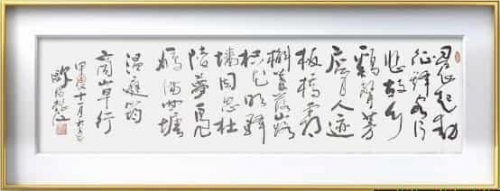 晨起動
征鐸客行
悲故鄉
鷄聲茅
店月人迹
板橋霜
槲葉落山路
枳花明驛
墻因思杜
陵夢鳧
雁满回塘
温庭筠
商山早行
十一月